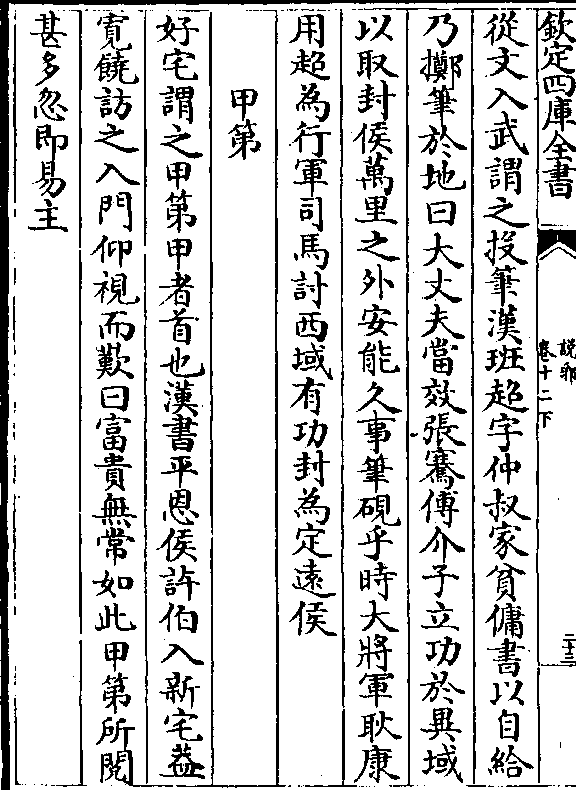 欽定四庫全書
說郛
卷十二下
二十三
從文入武謂之投筆漢班超字仲叔家貧傭書以自給
乃擲筆於地曰大丈夫當效張騫傅介子立功於異域
以取封侯萬里之外安能久事筆硯乎時大將軍耿康
用超為行軍司馬討西域有功封為定遠侯
甲第
好宅謂之甲第甲者首也漢書平恩侯許伯入新宅葢
寛饒訪之入門仰視而歎曰富貴無常如此甲第所閱
甚多忽即易主